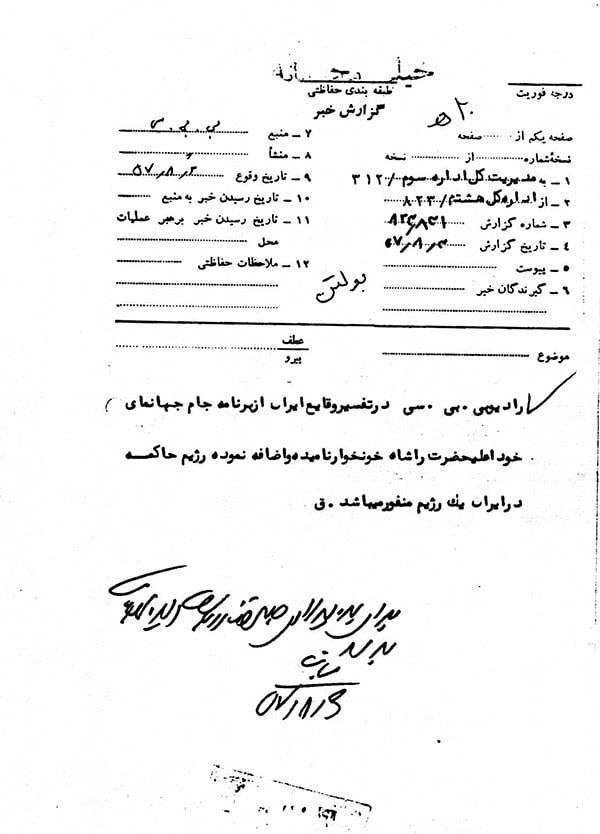 خیلی محرمانه
طبقه بندی حفاظتی
درجه فوریت
گزارش خبر
صفحه یکم از صفحه
نسخهٔ شماره از نسخه
۱ ـ به مدیریت کل اداره سوم / ۳۱۲
۲ ـ از اداره کل هشتم / ۸۲۳
۳ ـ شماره گزارش
۴ ـ تاریخ گزارش
۵ ـ پیوست
۶ ـ گیرندگان خبر
۷ ـ منبع بی . بی . سی
۸ ـ منشأ
۹ ـ تاریخ وقوع
۱۰ ـ تاریخ رسیدن خبر به منبع
۱۱ ـ تاریخ رسیدن خبر برهبر عملیات
محل
۱۲ ـ ملاحظات حفاظتی
بولتن
موضوع
عطف
پیرو
رادیوبی .بی .سی در تفسیر وقایع ایران از برنامه جام جهان‌نمای
خود اعلیحضرت را شاه خونخوار نامیده و اضافه نموده رژیم حاکمه
در ایران یك رژیم منفور میباشد .ق